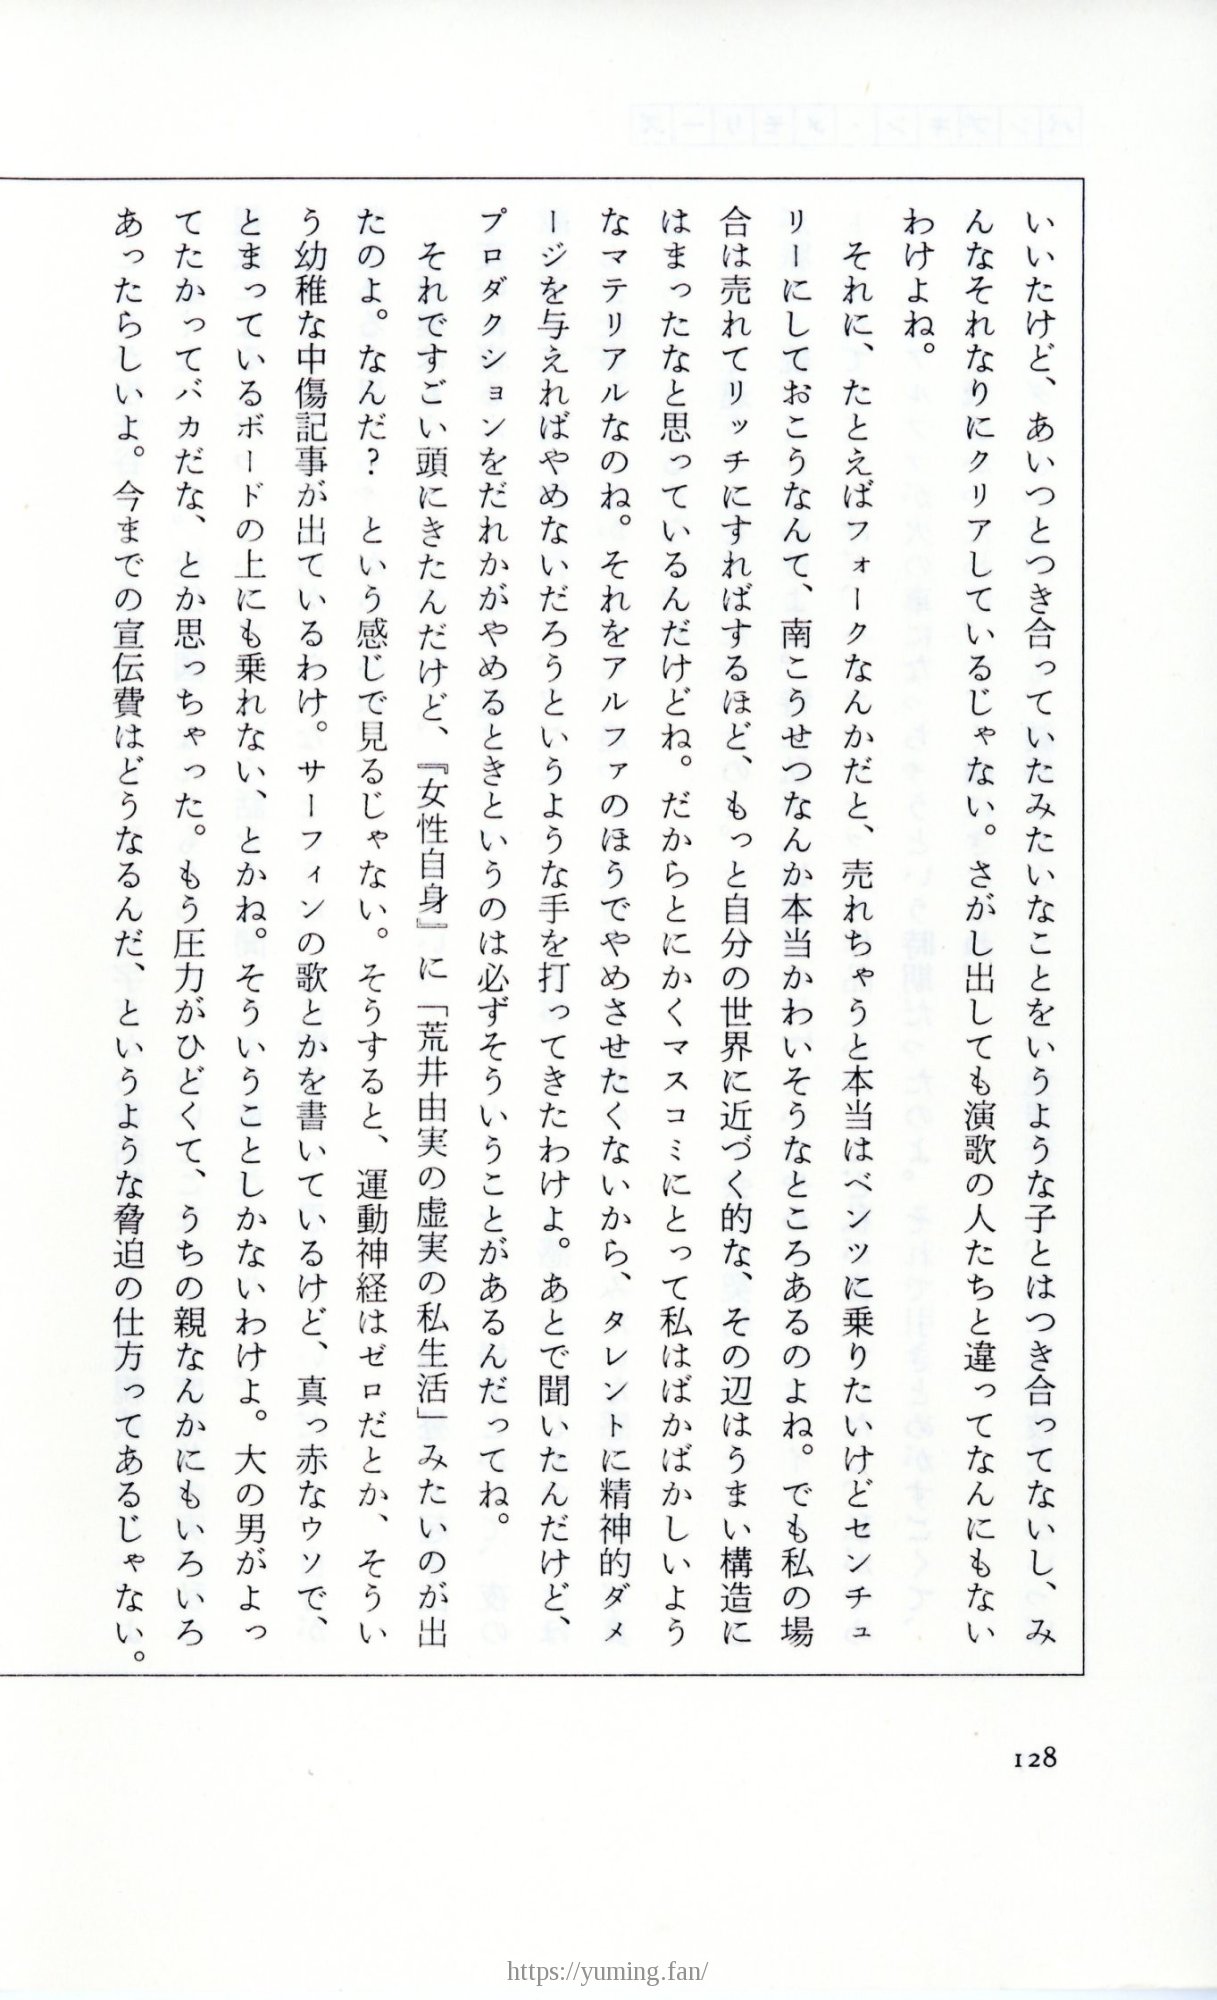 いいたけど、あいつとつき合っていたみたいなことをいうような子とはつき合ってないし、み
んなそれなりにクリアしているじゃない。さがし出しても演歌の人たちと違ってなんにもない
わけよね。
それに、たとえばフォークなんかだと、売れちゃうと本当はベンツに乗りたいけどセンチュ
リーにしておこうなんて、南こうせつなんか本当かわいそうなところあるのよね。でも私の場
合は売れてリッチにすればするほど、もっと自分の世界に近づく的な、その辺はうまい構造に
はまったなと思っているんだけどね。だからとにかくマスコミにとって私はばかばかしいよう
なマテリアルなのね。それをアルファのほうでやめさせたくないから、タレントに精神的ダメ
ージを与えればやめないだろうというような手を打ってきたわけよ。あとで聞いたんだけど、
プロダクションをだれかがやめるときというのは必ずそういうことがあるんだってね。
それですごい頭にきたんだけど、『女性自身』に「荒井由実の虚実の私生活」みたいのが出
たのよ。なんだ？という感じで見るじゃない。そうすると、運動神経はゼロだとか、そうい
う幼稚な中傷記事が出ているわけ。サーフィンの歌とかを書いているけど、真っ赤なウソで、
とまっているボードの上にも乗れない、とかね。そういうことしかないわけよ。大の男がよっ
てたかってバカだな、とか思っちゃった。もう圧力がひどくて、うちの親なんかにもいろいろ
あったらしいよ。今までの宣伝費はどうなるんだ、というような脅迫の仕方ってあるじゃない。
128
https://yuming.fan/